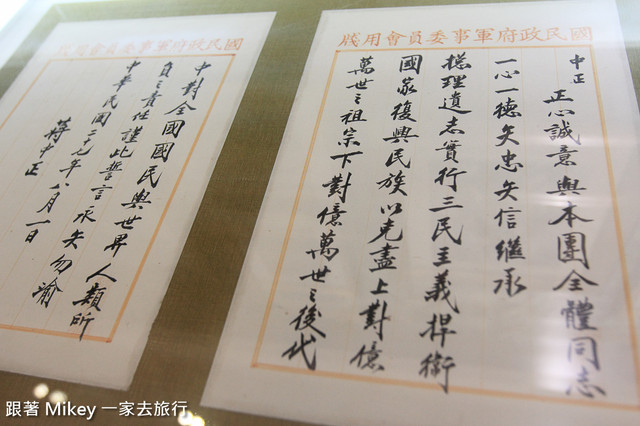 國民政府軍事委員會用牋
中正
正心誠意與本團全體同志
一心一德矢忠矢信繼承
總理遺志實行三民主義捍衛
國家復興民族以克盡上對億
萬世之祖宗下對億萬世之後代
國民政府軍事委員會用牋
中對全國國民與世界人類所
負之責任謹此誓言永矢勿渝
中華民國二十九年八月一日
蔣中正
跟著 Mikey 一家去旅行